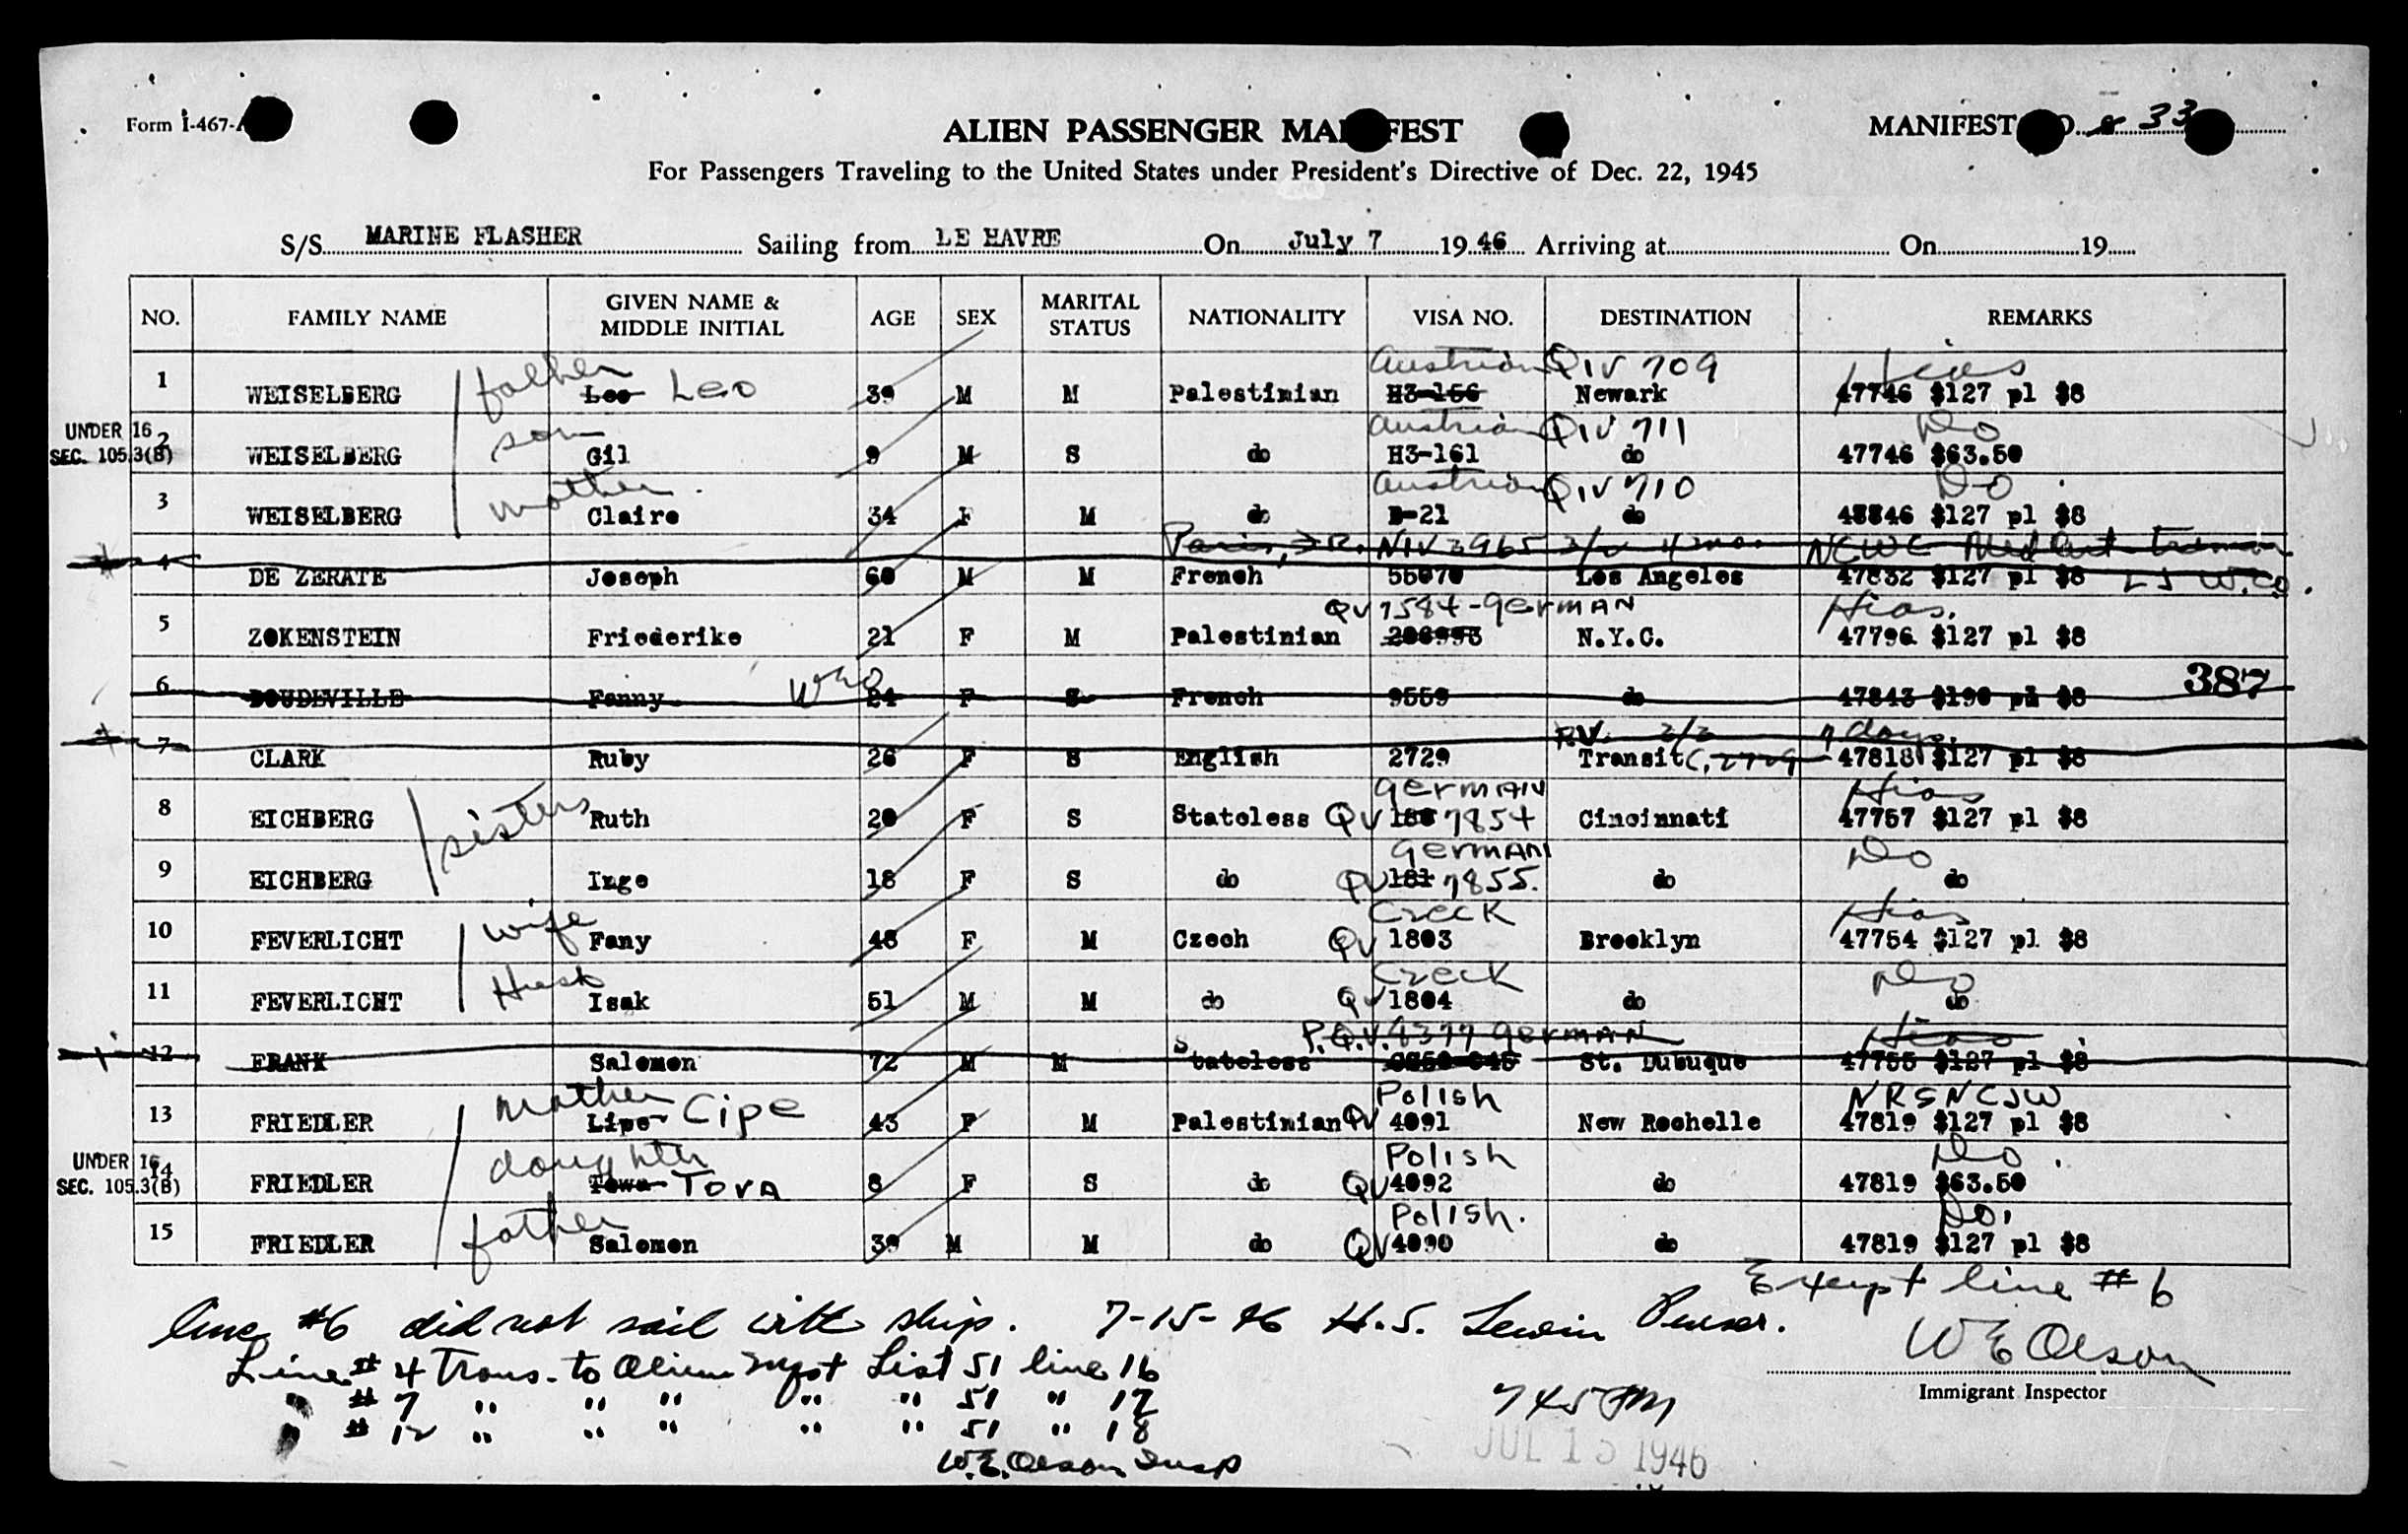 Form I-467-
ALIEN PASSENGER MA FEST
MANIFEST O. 33
For Passengers Traveling to the United States under President's Directive of Dec. 22, 1945
S/S MARINE FLASHER Sailing from LE HAVRE On July 7 19 46 Arriving at On 19
NO. FAMILY NAME GIVEN NAME & MIDDLE INITIAL AGE SEX MARITAL STATUS NATIONALITY VISA NO. DESTINATION REMARKS
father Austrian QIV 709 Hias
1 WEISELBERG Leo Leo 39 M M Palestinian H3-156 Newark 47746 $127 pl $8
UNDER 16 son Austrian QIV 711 Do
SEC. 105.3(B) 2 WEISELBERG Gil 9 M S do H3-161 do 47746 $63.50
mother Austrian QIV 710 Do
3 WEISELBERG Claire 34 F M do B-21 do 48846 $127 pl $8
Paris, FR. NIV 3965 NCWC
4 DE ZERATE Joseph 60 M M French 55070 Los Angeles 47832 $127 pl $8
QV 7584-German Hias.
5 ZOKENSTEIN Friederike 21 F M Palestinian 206993 N.Y.C. 47796 $127 pl $8
6 BOUDEVILLE Fanny 24 F S French 9559 do 47843 $190 pl $8 387
7 days.
7 CLARK Ruby 26 F S English 2729 Transit 47818 $127 pl $8
sisters German Hias
8 EICHBERG Ruth 20 F S Stateless QV 180 7854 Cincinnati 47757 $127 pl $8
German Do
9 EICHBERG Inge 18 F S do QV 181 7855. do do
wife Czeck Hias
10 FEVERLICHT Fany 48 F M Czech QV 1803 Brooklyn 47754 $127 pl $8
Husb Czeck Do
11 FEVERLICHT Isak 51 M M do QV 1804 do do
P.Q.V. 4377 German Hias
12 FRANK Salomon 72 M M Stateless St. Dubuque 47755 $127 pl $8
mother Polish NRSNCJW
13 FRIEDLER Lipe Cipe 43 F M Palestinian QV 4091 New Rochelle 47819 $127 pl $8
UNDER 16 daughter Polish Do
SEC. 105.3(B) 14 FRIEDLER Towa Tova 8 F S do QV 4092 do 47819 $63.50
father Polish. Do.
15 FRIEDLER Salomon 39 M M do QV 4090 do 47819 $127 pl $8
Except line # 6
line #6 did not sail with ship. 7-15-46 H.S. Lewin Purser.
W E Olson
Immigrant Inspector
Line # 4 Trans. to Alien Mfst List 51 line 16
" # 7 " " " " " 51 " 17
" # 12 " " " " " 51 " 18
W.E. Olson Insp
745 PM
JUL 15 1946